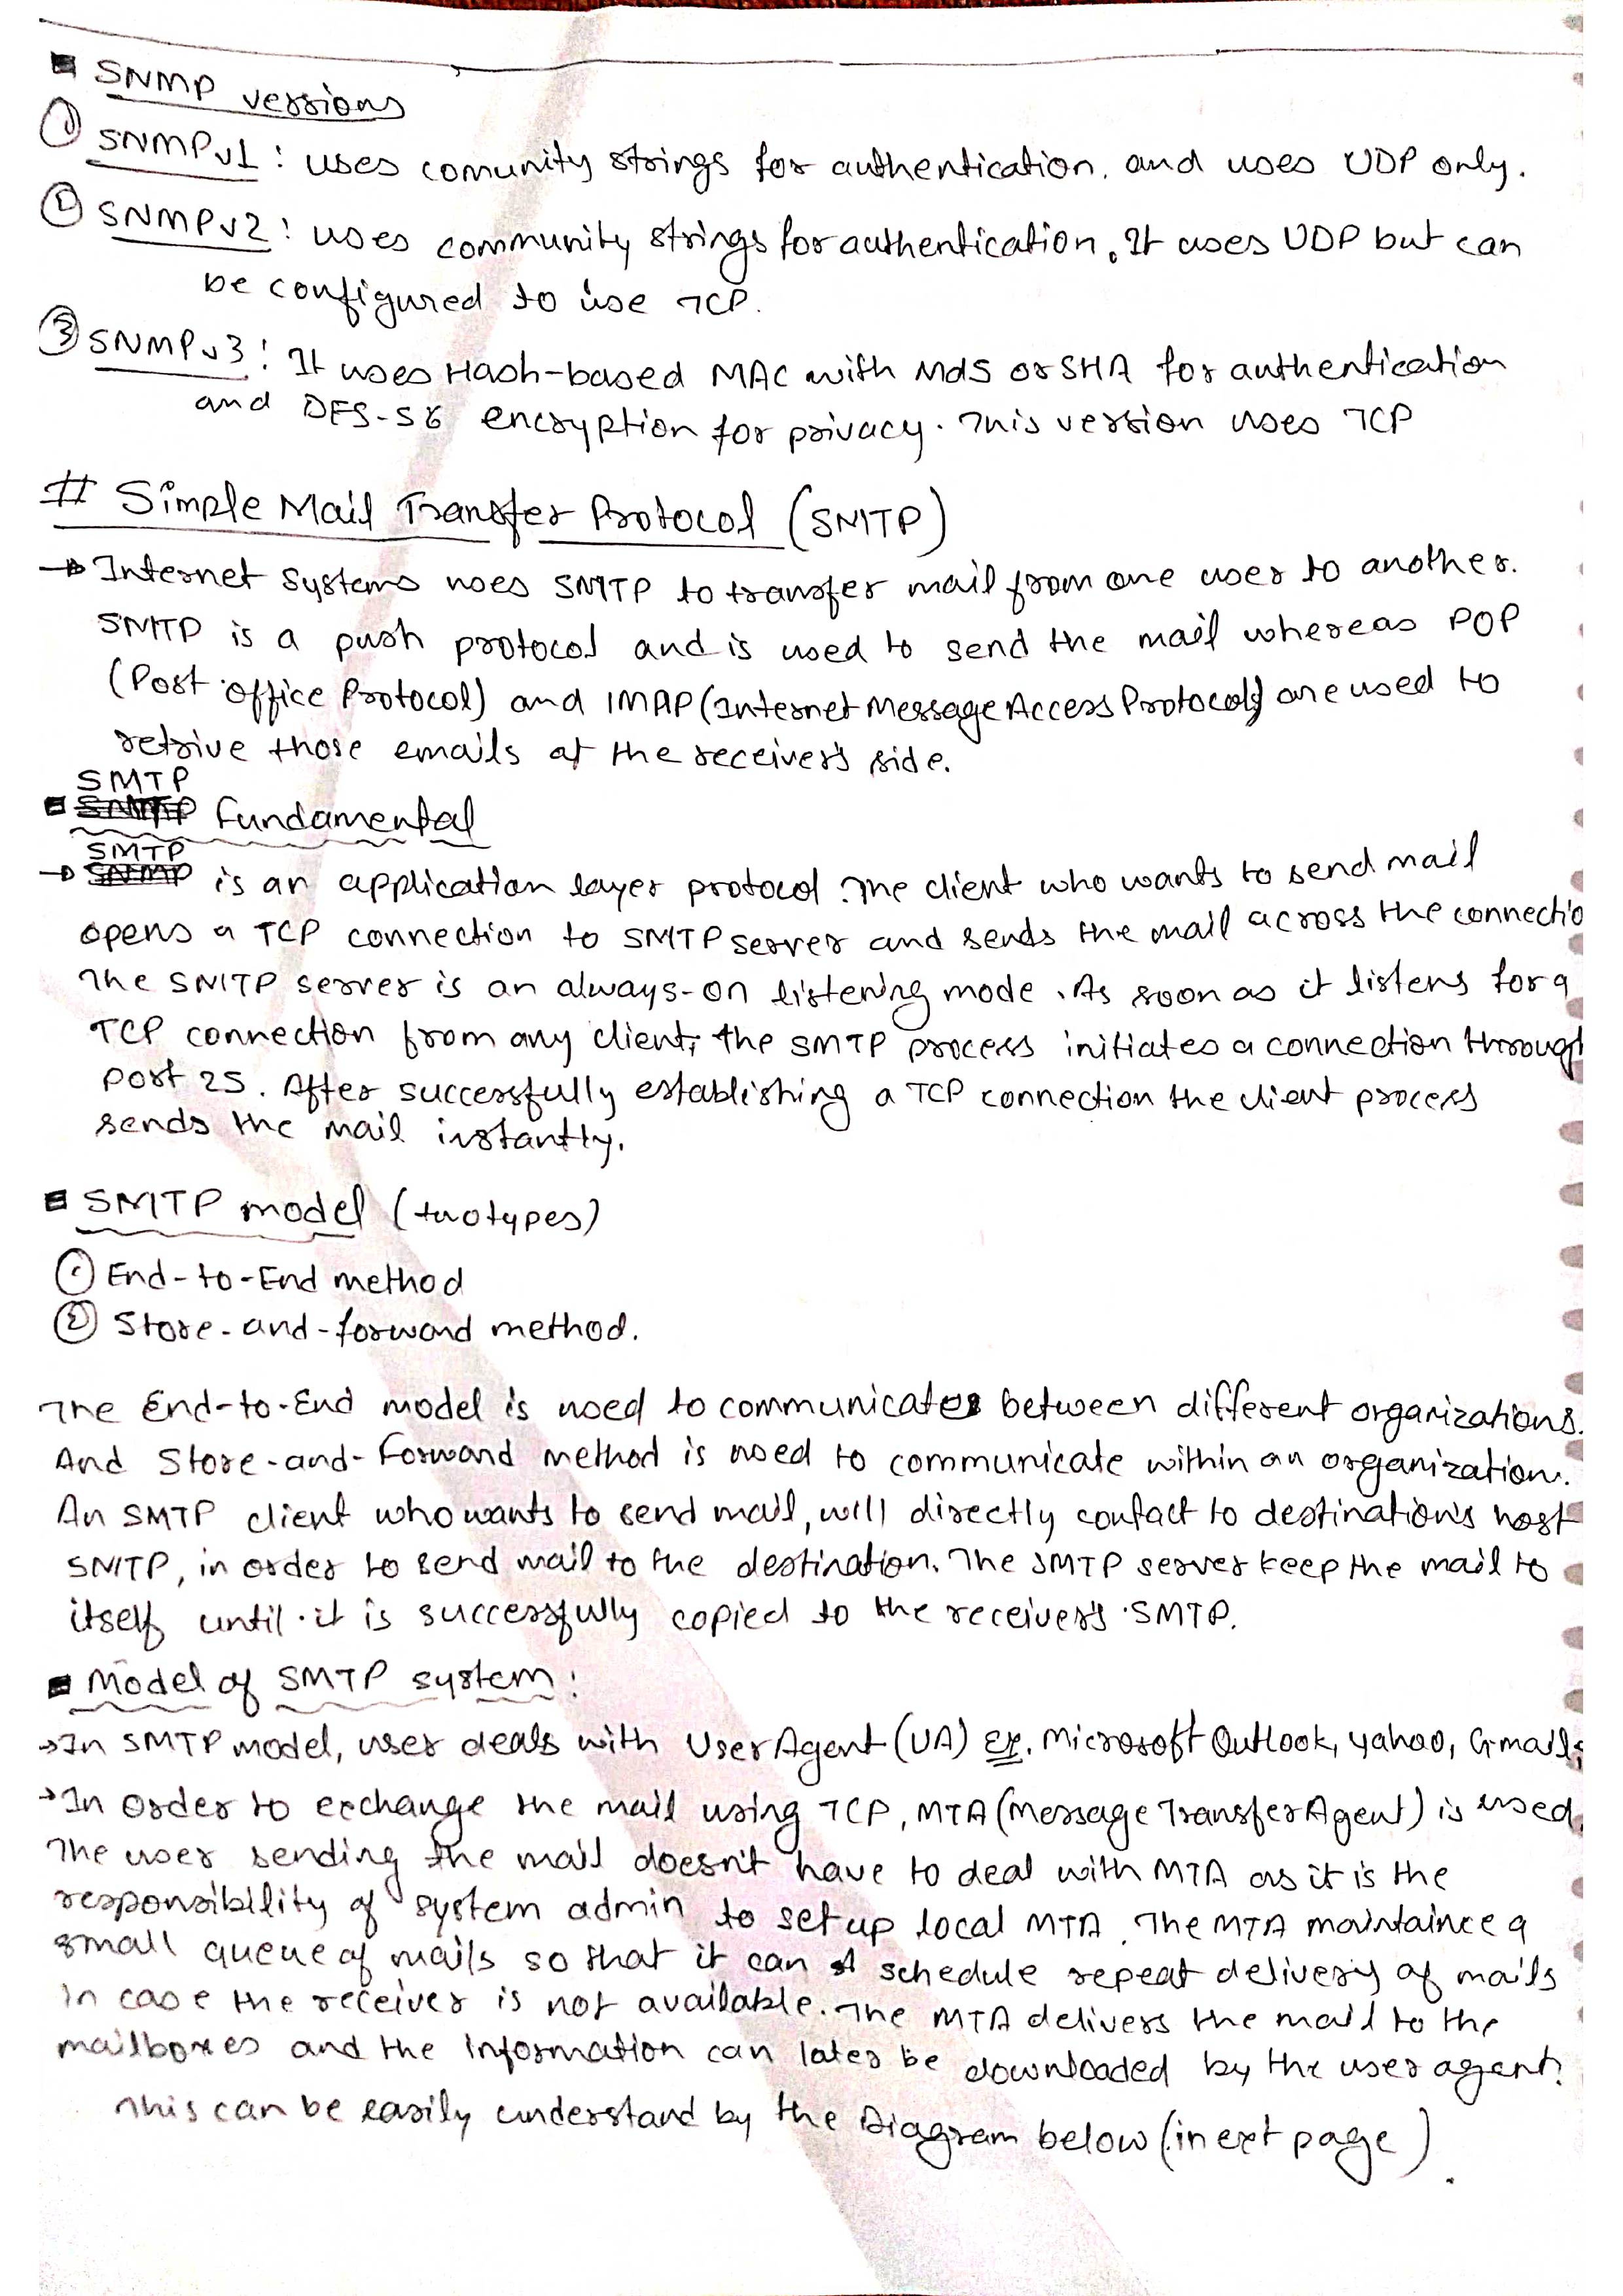 SNMP versions
① SNMPv1: uses comunity strings for authentication. and uses UDP only.
② SNMPv2: uses community strings for authentication. It uses UDP but can
be configured to use TCP.
③ SNMPv3: It uses Hash-based MAC with MD5 or SHA for authentication
and DES-56 encryption for privacy. This version uses TCP
# Simple Mail Transfer Protocol (SMTP)
→ Internet systems uses SMTP to transfer mail from one user to another.
SMTP is a push protocol and is used to send the mail whereas POP
(Post office Protocol) and IMAP (Internet Message Access Protocol) are used to
retrive those emails at the receiver's side.
SMTP
fundamental
SMTP
→ is an application layer protocol. The client who wants to send mail
opens a TCP connection to SMTP server and sends the mail across the connectio
The SMTP server is an always-on listening mode. As soon as it listens for a
TCP connection from any client, the SMTP process initiates a connection through
port 25. After successfully establishing a TCP connection the client process
sends the mail instantly.
SMTP model (two types)
① End-to-End method
② Store-and-forward method.
The End-to-End model is used to communicates between different organizations.
And Store-and-Forward method is used to communicate within an organization.
An SMTP client who wants to send mail, will directly contact to destination's host
SMTP, in order to send mail to the destination. The SMTP server keep the mail to
itself until it is successfully copied to the receiver's SMTP.
Model of SMTP system:
→ In SMTP model, user deals with User Agent (UA) Ex. Microsoft Outlook, Yahoo, Gmail,
→ In order to exchange the mail using TCP, MTA (Message Transfer Agent) is used.
The user sending the mail doesn't have to deal with MTA as it is the
responsibility of system admin to set up local MTA. The MTA maintaince a
small queue of mails so that it can schedule repeat delivery of mails
in case the receiver is not available. The MTA delivers the mail to the
mailboxes and the information can later be downloaded by the user agent.
This can be easily understand by the Diagram below (in ext page).